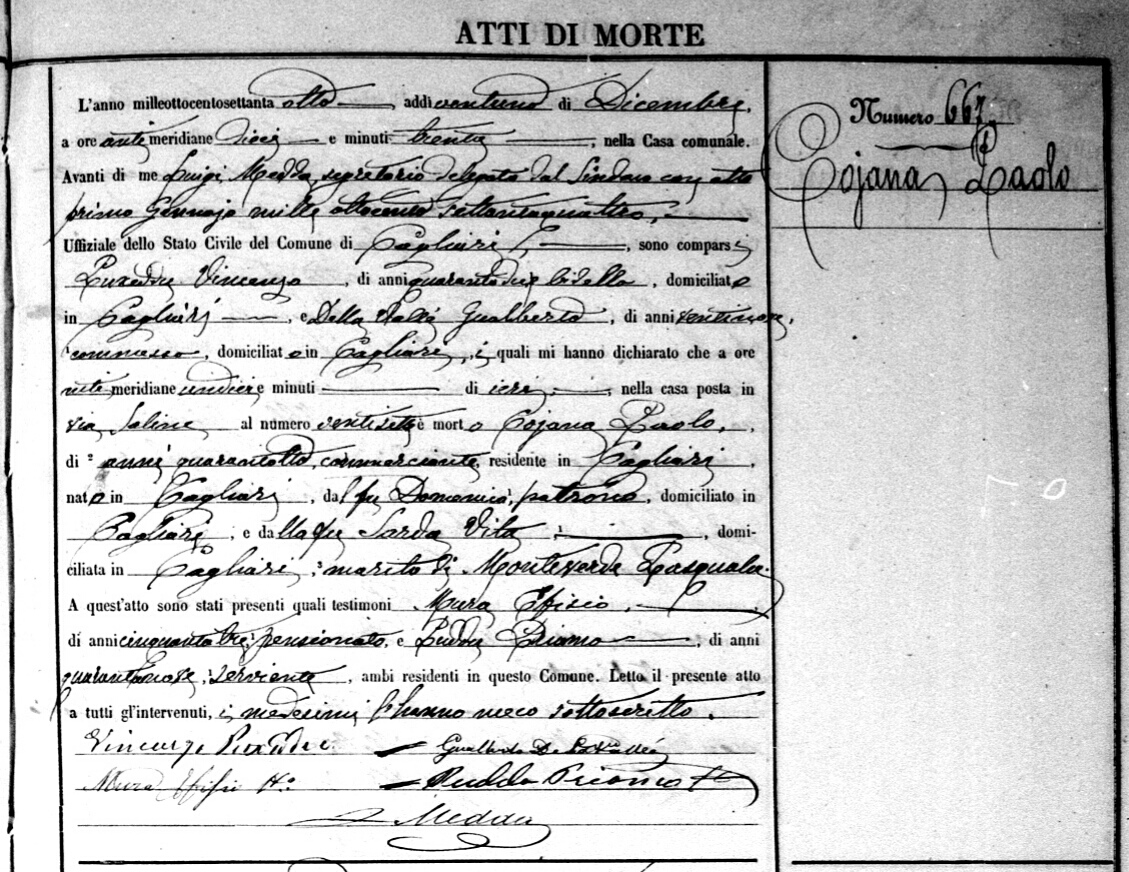 ATTI DI MORTE
Numero 667
Cojana Paolo
L'anno milleottocentosettanta otto, addì ventuno di Dicembre,
a ore anti meridiane dieci e minuti trenta, nella Casa comunale.
Avanti di me Luigi Medda, segretario delegato dal Sindaco con atto
primo Gennajo mille ottocento settantaquattro,
Uffiziale dello Stato Civile del Comune di Cagliari, sono compars i
Puxeddu Vincenzo, di anni quarantadue bidello, domiciliato
in Cagliari, e Della Vallé Gualberto, di anni ventinove,
commesso, domiciliat o in Cagliari, i quali mi hanno dichiarato che a ore
anti meridiane undici e minuti di ieri, nella casa posta in
via Saline al numero ventisette è mort o Cojana Paolo,
di anni quarantotto, commerciante, residente in Cagliari,
nat o in Cagliari, da l fu Domenico, patrono, domiciliato in
Cagliari, e da lla fu Sarda Vita, domi-
ciliata in Cagliari, marito di Monteverde Pasquala.
A quest'atto sono stati presenti quali testimoni Mura Efisio,
di anni cinquantatre, pensionato, e Puddu Priamo, di anni
quarantanove, serviente, ambi residenti in questo Comune. Letto il presente atto
a tutti gl'intervenuti, i medesimi l'hanno meco sottoscritto.
Vincenzo Puxeddu. Gualberto Della Vallé
Mura Efisio Puddu Priamo
Medda